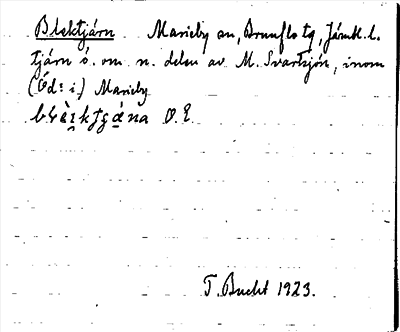 Blektjärn Marieby sn, Brunflo tg, Jämtl. l.
tjärn ö. om n. delen av M. Svartsjön, inom
(Öd: i.) Marieby
O. E.
T. Bucht 1923.